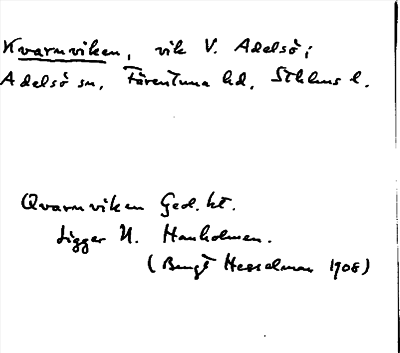 Kvarnviken, vik V. Adelsö;
Adelsö sn, Färentuna hd, Sthlms l.
Qvarnviken Geol. kt.
Ligger N. Hanholmen.
(Bengt Hesselman 1908)